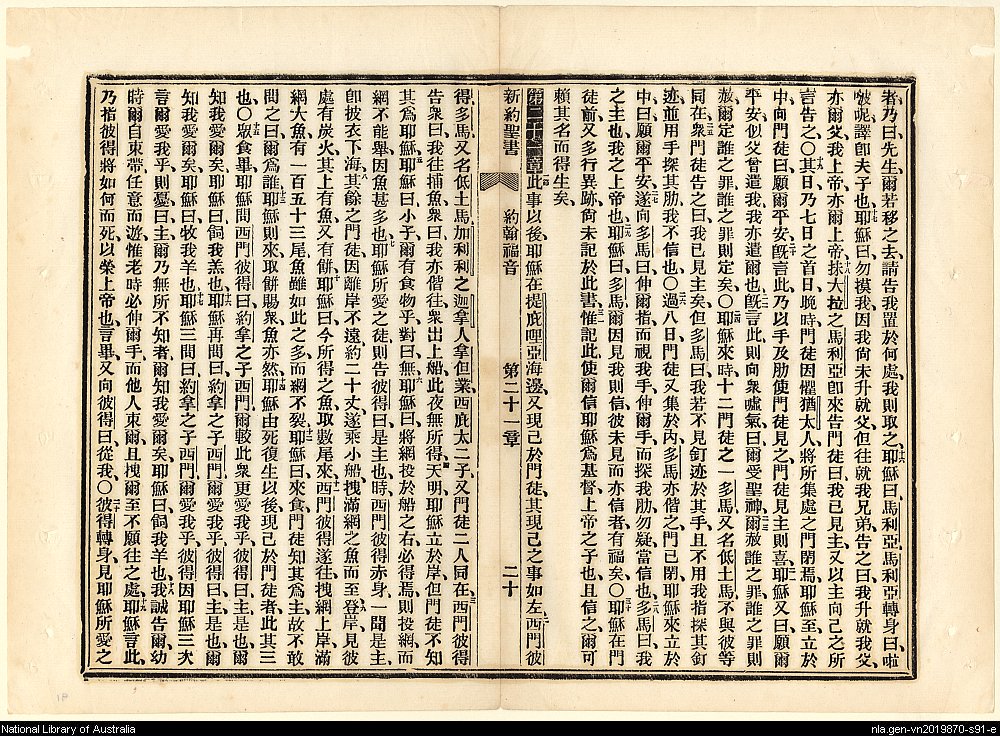 者、乃曰、先生、爾若移之去、請告我置於何處、我則取之、耶穌曰、馬利亞、馬利亞轉身曰、啦
啵呢、譯卽夫子也、耶穌曰、勿摸我、因我尙未升就父、但往就我兄弟、告之曰、我升就我父、
亦爾父、我上帝、亦爾上帝、抹大拉之馬利亞卽來告門徒曰、我已見主、又以主向己之所
言告之、○其日乃七日之首日、晚時門徒因懼猶太人、將所集處之門閉焉、耶穌至、立於
中、向門徒曰、願爾平安、旣言此、乃以手及肋使門徒見之、門徒見主則喜、耶穌又曰、願爾
平安、似父曾遣我、我亦遣爾也、旣言此、則向衆噓氣曰、爾受聖神、爾赦誰之罪、誰之罪則
赦、爾定誰之罪、誰之罪則定矣、○耶穌來時、十二門徒之一多馬、又名低土馬、不與彼等
同在、衆門徒告之曰、我已見主矣、但多馬曰、我若不見釘迹於其手、且不用我指探其釘
迹、並用手探其肋、我不信也、○過八日、門徒又集於內、多馬亦偕之、門已閉、耶穌來立於
中曰、願爾平安、遂向多馬曰、伸爾指而視我手、伸爾手而探我肋、勿疑、當信也、多馬曰、我
之主也、我之上帝也、耶穌曰、多馬、爾因見我則信、彼未見而亦信者有福矣、○耶穌在門
徒前、又多行異跡、尙未記於此書、惟記此使爾信耶穌爲基督、上帝之子也、且信之、爾可
賴其名而得生矣、
第二十一章 此事以後、耶穌在提庇哩亞海邊、又現己於門徒、其現己之事如左、西門彼
新約聖書 約翰福音 第二十一章 二十
得、多馬又名低土馬、加利利之迦拿人拿但業、西庇太二子、又門徒二人同在、西門彼得
告衆曰、我往捕魚、衆曰、我亦偕往、衆出上船、此夜無所得、天明、耶穌立於岸、但門徒不知
其爲耶穌、耶穌曰、小子、爾有食物乎、對曰、無、耶穌曰、將網投於船之右、必得焉、則投網、而
網不能舉、因魚甚多也、耶穌所愛之徒則告彼得曰、是主也、時西門彼得赤身、一聞是主、
卽披衣下海、其餘之門徒、因離岸不遠、約二十丈、遂乘小船、拽滿網之魚而至、登岸見彼
處有炭火、其上有魚、又有餅、耶穌曰、今所得之魚取數尾來、西門彼得遂往拽網上岸、滿
網大魚、有一百五十三尾、魚雖如此之多、而網不裂、耶穌曰、來食、門徒知其爲主、故不敢
問之曰、爾爲誰、耶穌則來取餅賜衆、魚亦然、耶穌由死復生以後、現己於門徒者、此其三
也、○衆食畢、耶穌問西門彼得曰、約拿之子西門、爾較此衆更愛我乎、彼得曰、主是也、爾
知我愛爾矣、耶穌曰、飼我羔也、耶穌再問曰、約拿之子西門、爾愛我乎、彼得曰、主是也、爾
知我愛爾矣、耶穌曰、牧我羊也、耶穌三問曰、約拿之子西門、爾愛我乎、彼得因耶穌三次
言爾愛我乎、則憂曰、主、爾乃無所不知者、爾知我愛爾矣、耶穌曰、飼我羊也、我誠告爾、幼
時爾自束帶、任意而游、惟老時必伸爾手、而他人束爾、且拽爾至不願往之處、耶穌言此、
乃指彼得將如何而死、以榮上帝也、言畢、又向彼得曰、從我、○彼得轉身、見耶穌所愛之
National Library of Australia
nla.gen-vn2019870-s91-e